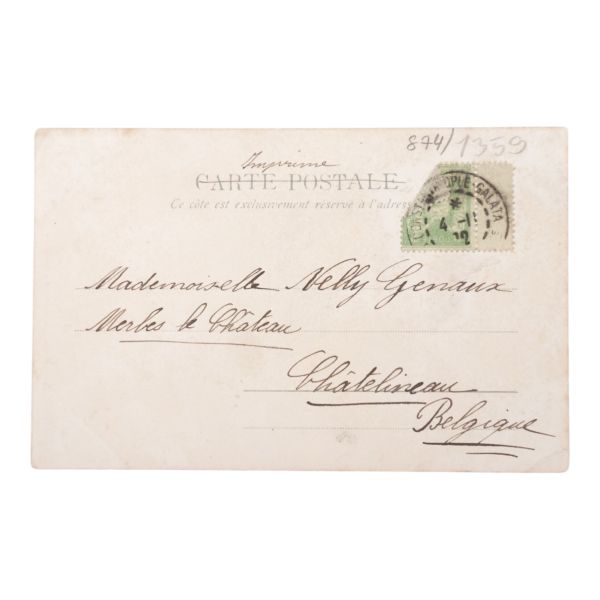 874/1359
Imprimé
CARTE POSTALE
Ce côté est exclusivement réservé à l'adresse
CONSTANTINOPLE-GALATA
4 -11
02
Mademoiselle Nelly Genaux
Merbes le Château
Châtelineau
Belgique